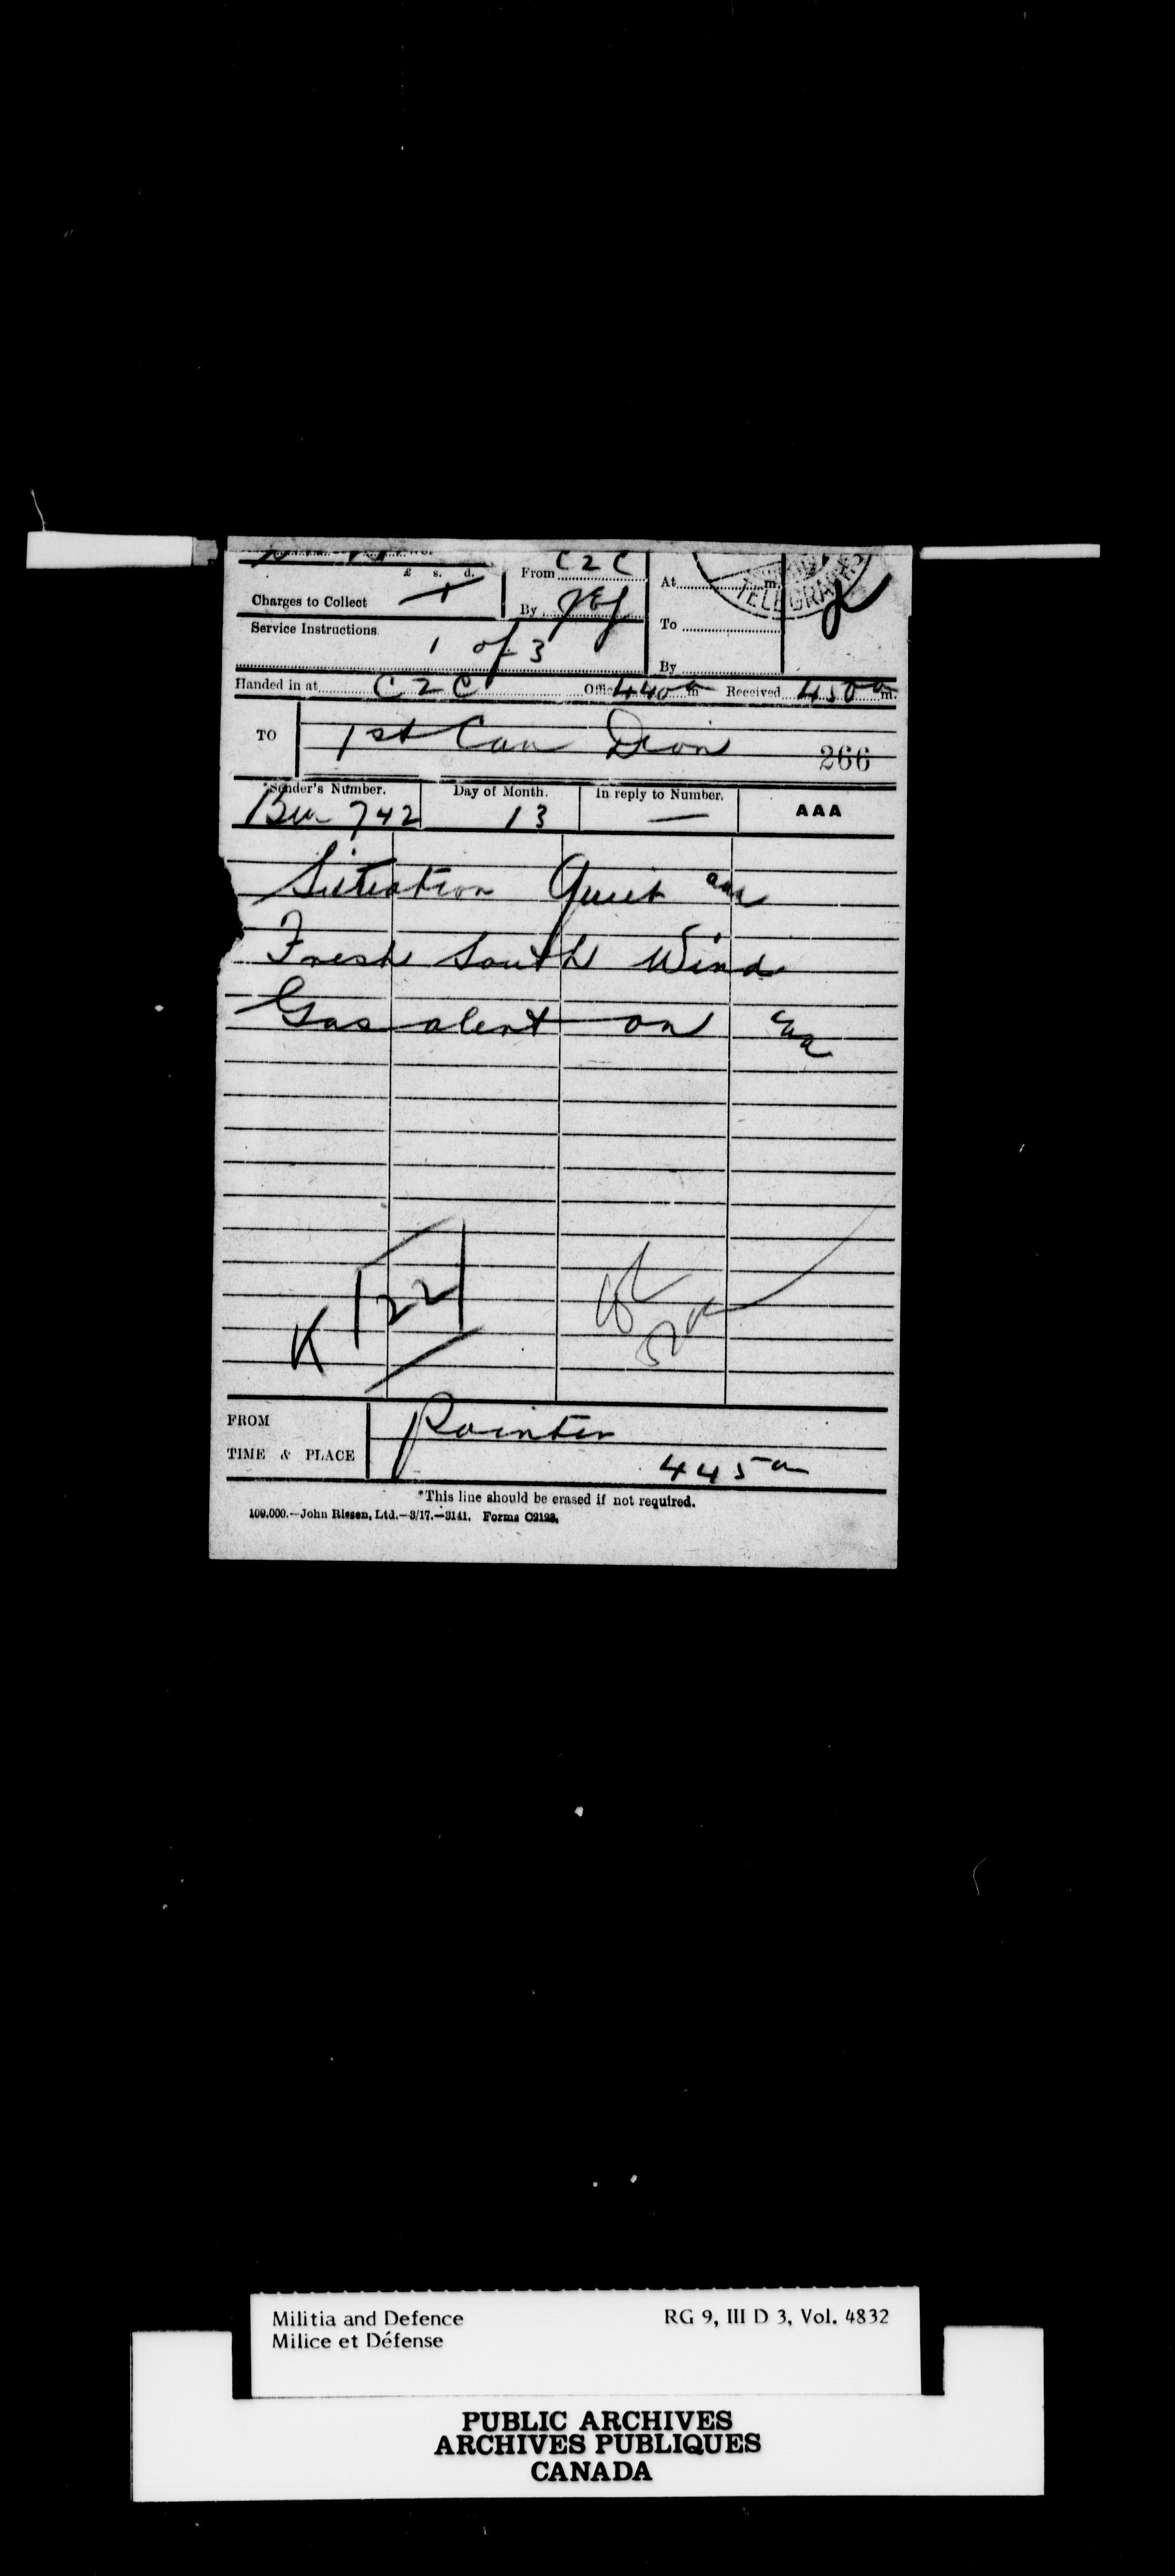 £ s. d.
Charges to Collect
From C2C
By JEJ
At m.
To
By
TELEGRAPHS
Service Instructions
1 of 3
Handed in at C2C Office 440a m Received 450a m.
TO 1st Can Divn
266
Sender's Number. Day of Month. In reply to Number. AAA
Bm 742 13 —
Situation Quiet aaa
Fresh South Wind
Gas alert on aaa
K 22
FROM Pointer
TIME & PLACE 445a
*This line should be erased if not required.
100,000.—John Riesen, Ltd.—3/17.—3141. Forms C2123.
Militia and Defence RG 9, III D 3, Vol. 4832
Milice et Défense
PUBLIC ARCHIVES
ARCHIVES PUBLIQUES
CANADA